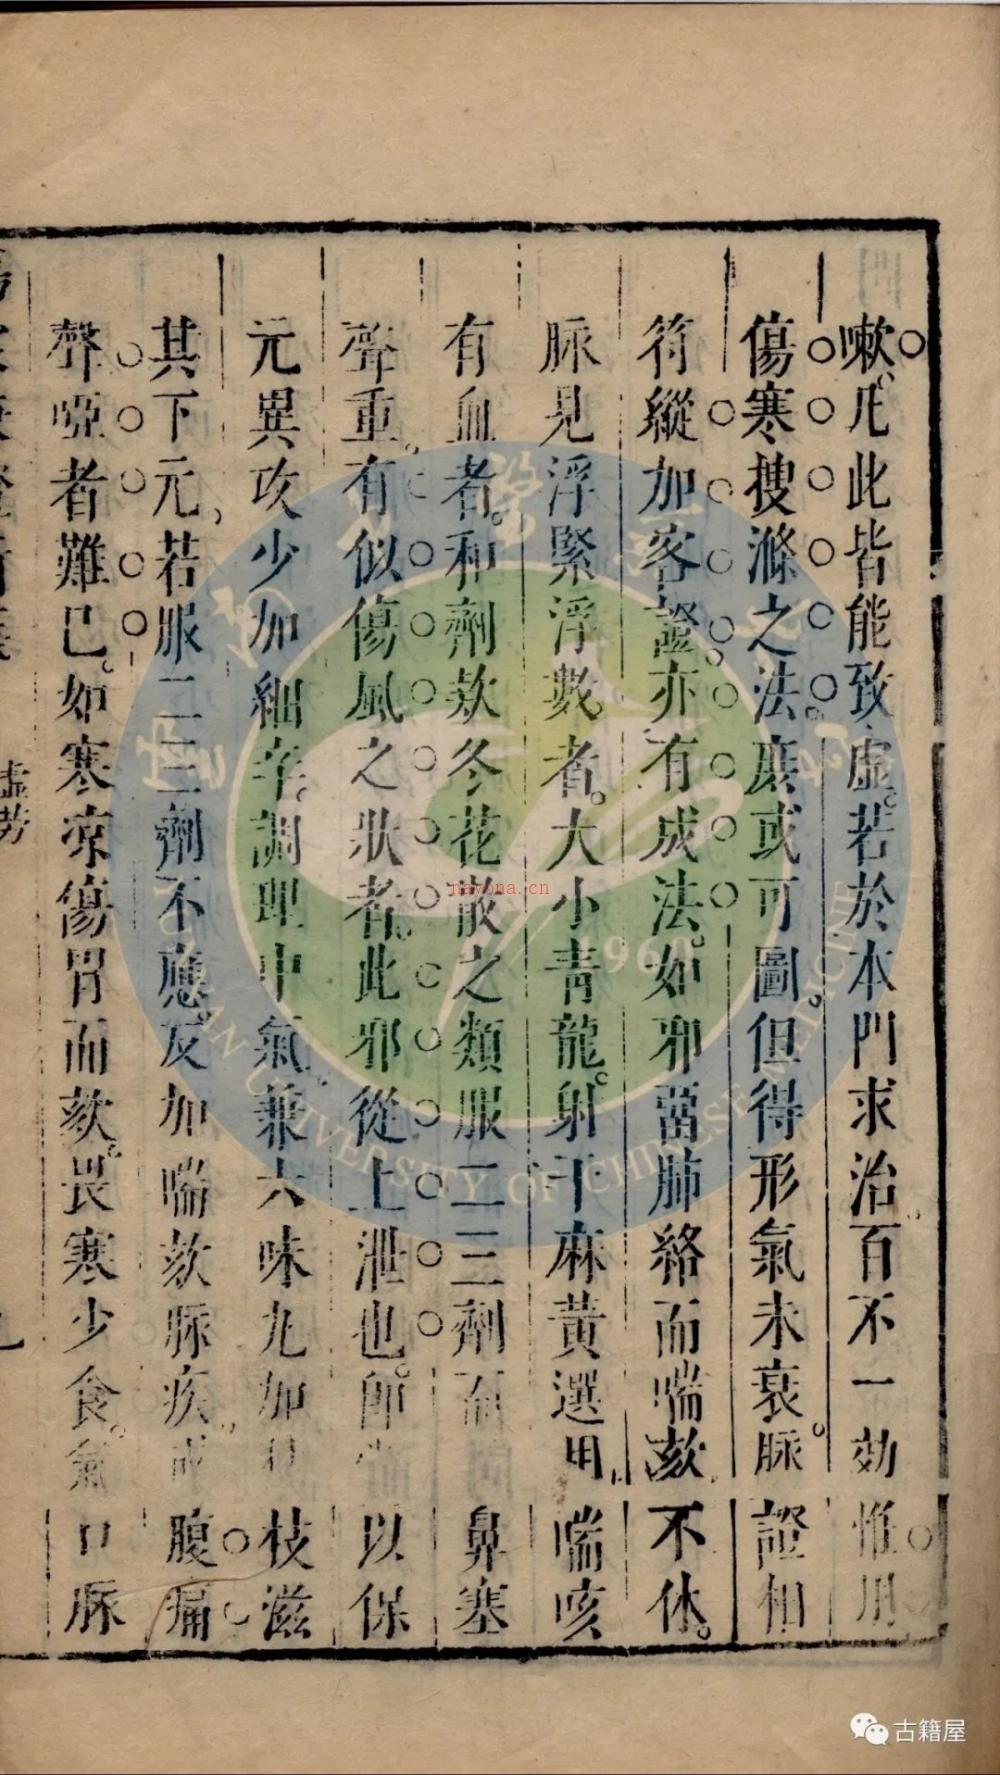 嗽。凡此皆能致虛。若於本門求治。百不一効。惟用
傷寒搜滌之法。庶或可圖。但得形氣未衰。脉證相
符。縱加客證。亦有成法。如邪畱肺絡而喘欬不休。
脉見浮緊浮數者。大小青龍。射干麻黃選用。喘咳
有血者。和劑欬冬花散之類。服二三劑而鼻塞
聲重。有似傷風之狀者。此邪從上泄也。即以保
元異攻少加細辛。調理中氣。兼六味丸加枝滋
其下元。若服二三劑不應。反加喘欬脉疾。腹痛
聲啞者難已。如寒凉傷胃而欬。畏寒少食。氣口脉
虛勞
nayona.cn
1960
UNIVERSITY OF CHINESE MEDICINE
古籍屋